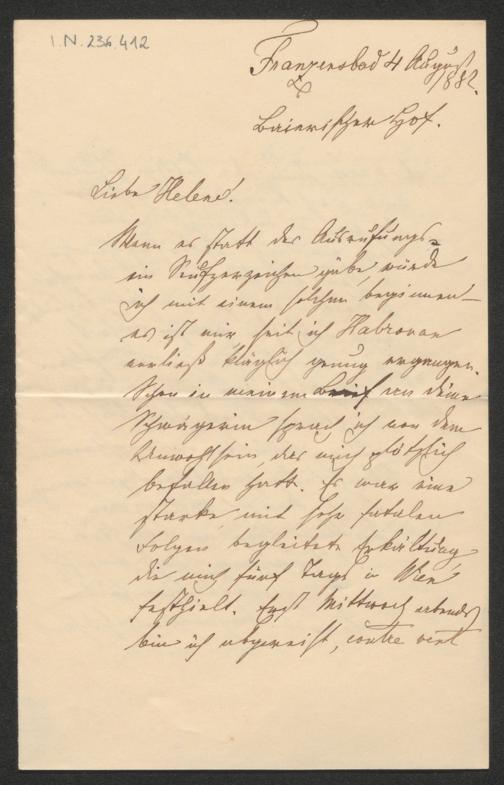 I.N. 236.412
Franzensbad 4 August
1882.
Baierischer Hof.
Liebe Helene!
Wenn es statt des Ausrufungs-
ein Seufzerzeichen gäbe, würde
ich mit einem solchen beginnen –
es ist mir seit ich Habrovan
verließ kläglich genug ergangen.
Schon in meinem Brief an deine
Schwägerin sprach ich von dem
Unwohlsein, das mich plötzlich
befallen hatt. Es war eine
starke, mit sehr fatalen
Folgen begleitete Erkältung,
die mich fünf Tage in Wien
festhielt. Erst Mittwoch abends
bin ich abgereist, contre vent